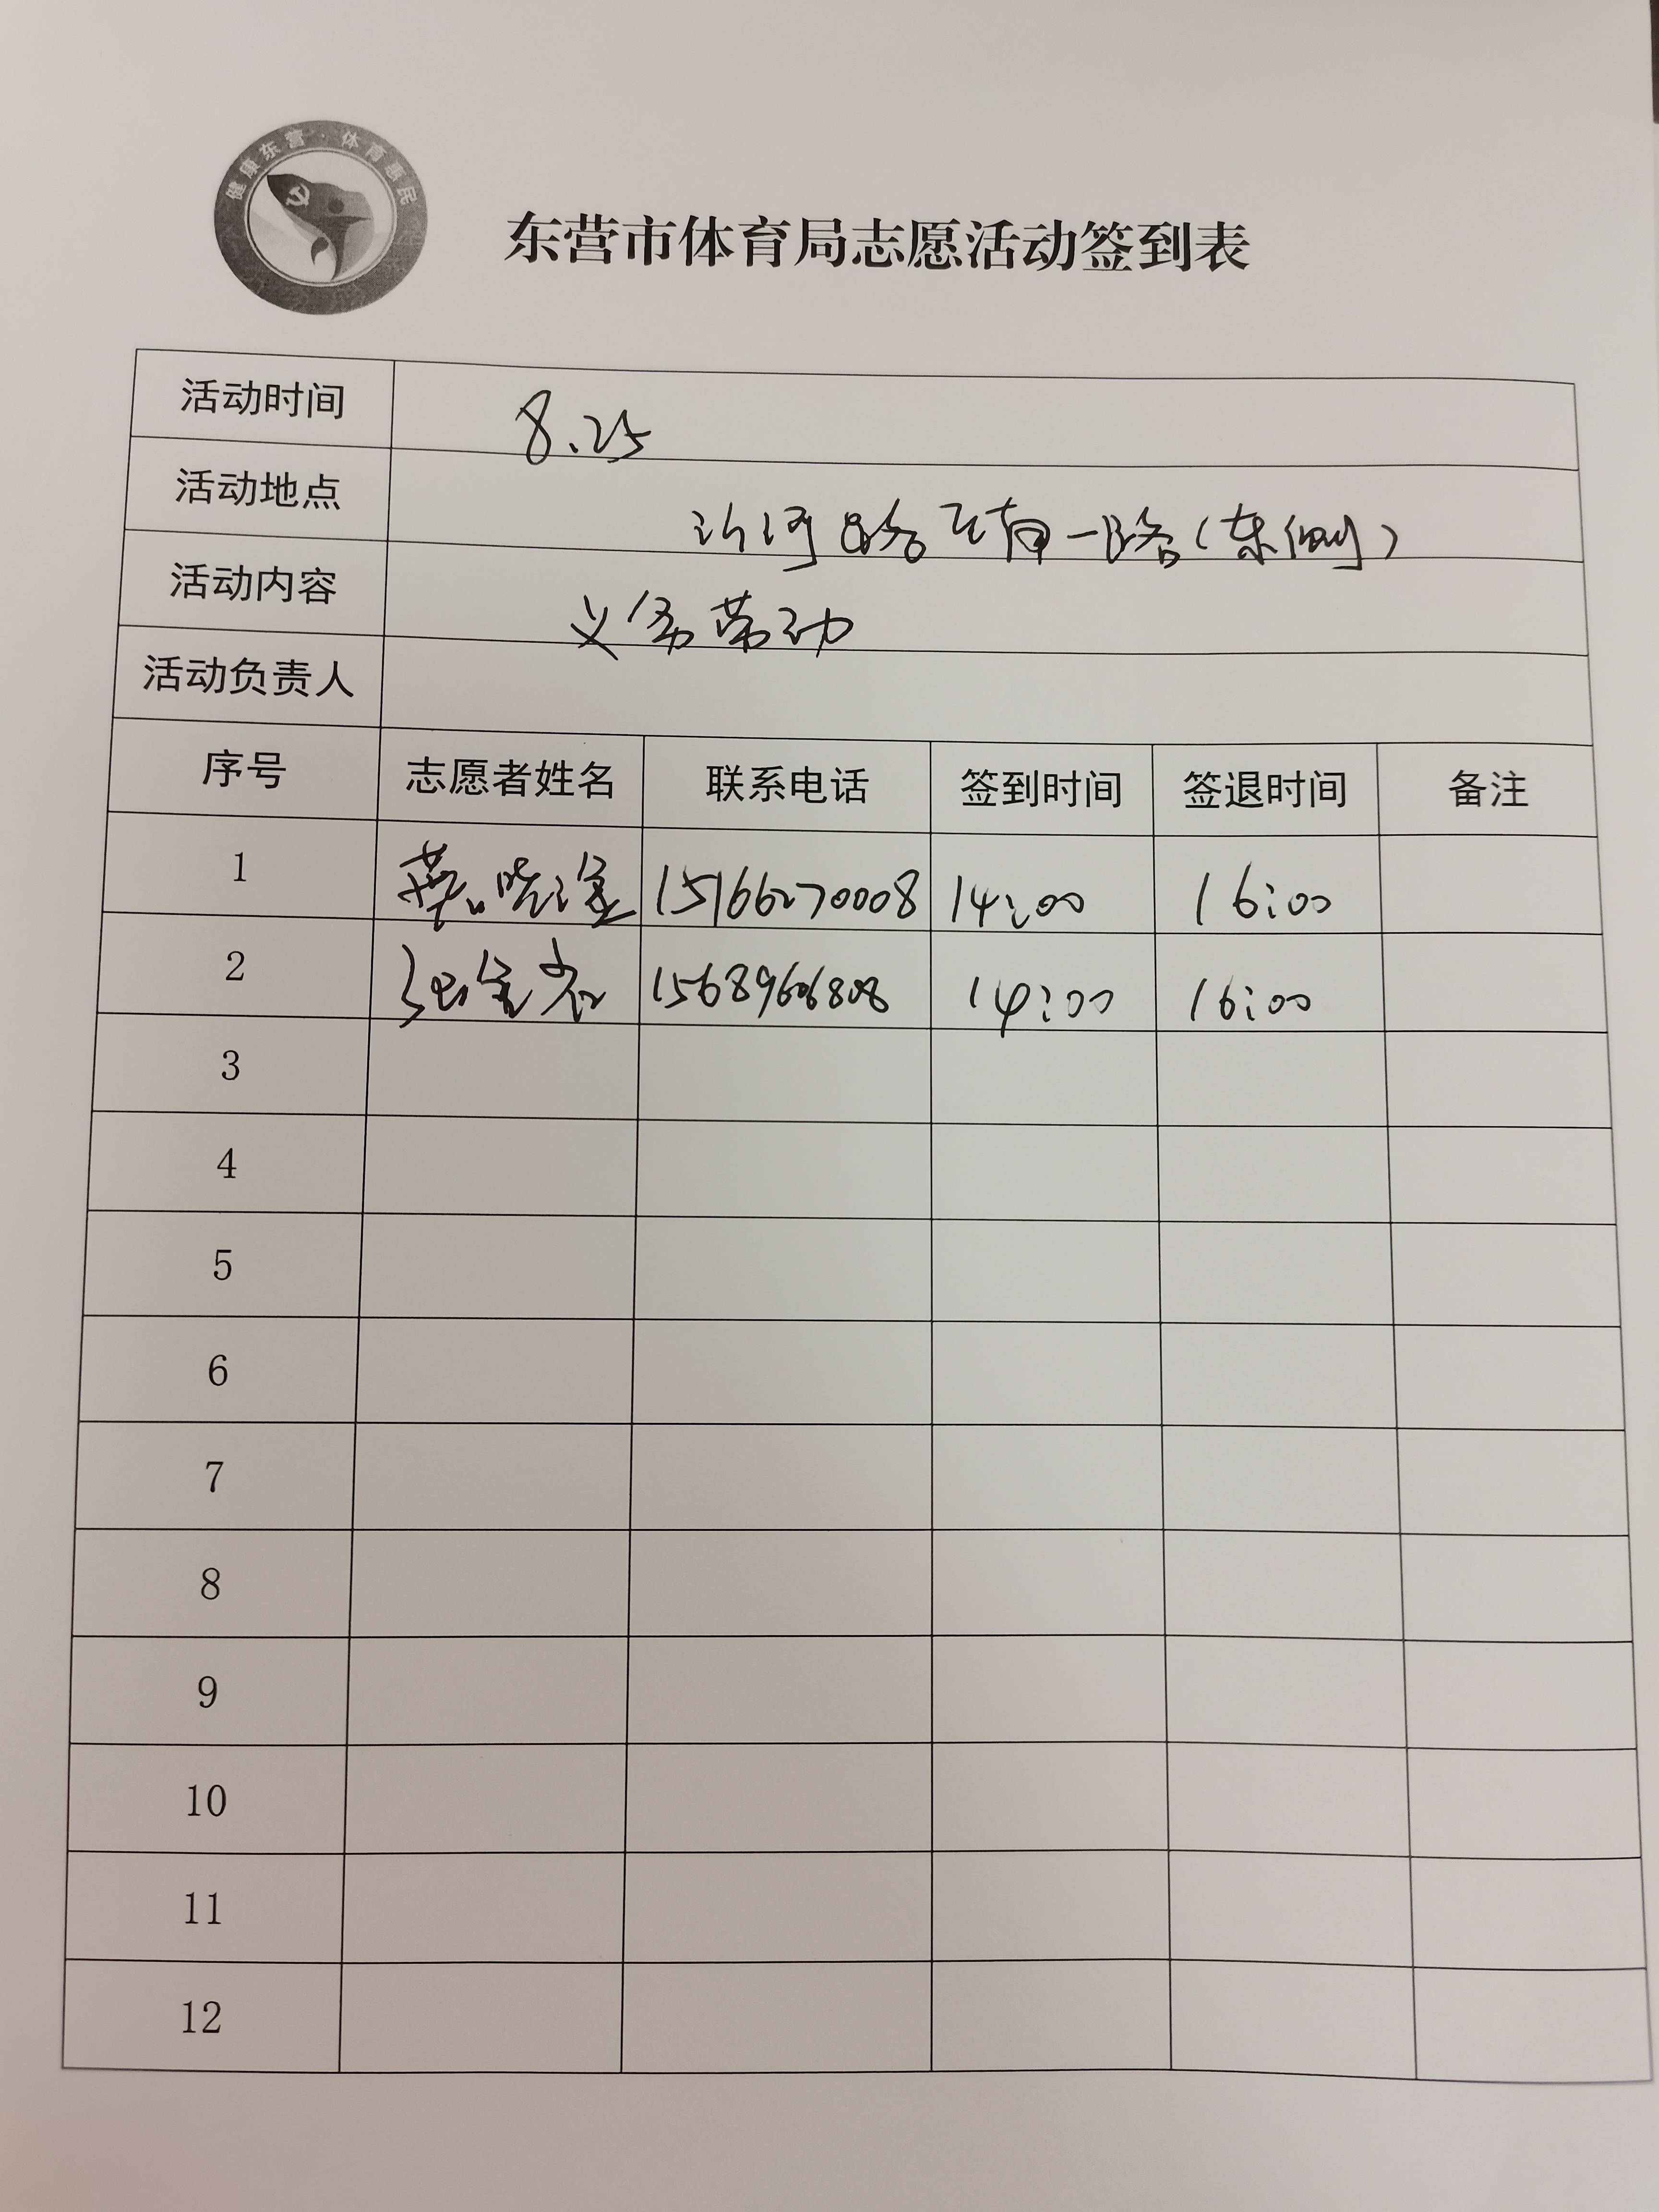 健康东营·体育惠民
东营市体育局志愿活动签到表
活动时间 8.25
活动地点 沂河路至南一路(东侧)
活动内容 义务劳动
活动负责人
序号 志愿者姓名 联系电话 签到时间 签退时间 备注
1 15166270008 14:00 16:00
2 15689606808 14:00 16:00
3
4
5
6
7
8
9
10
11
12